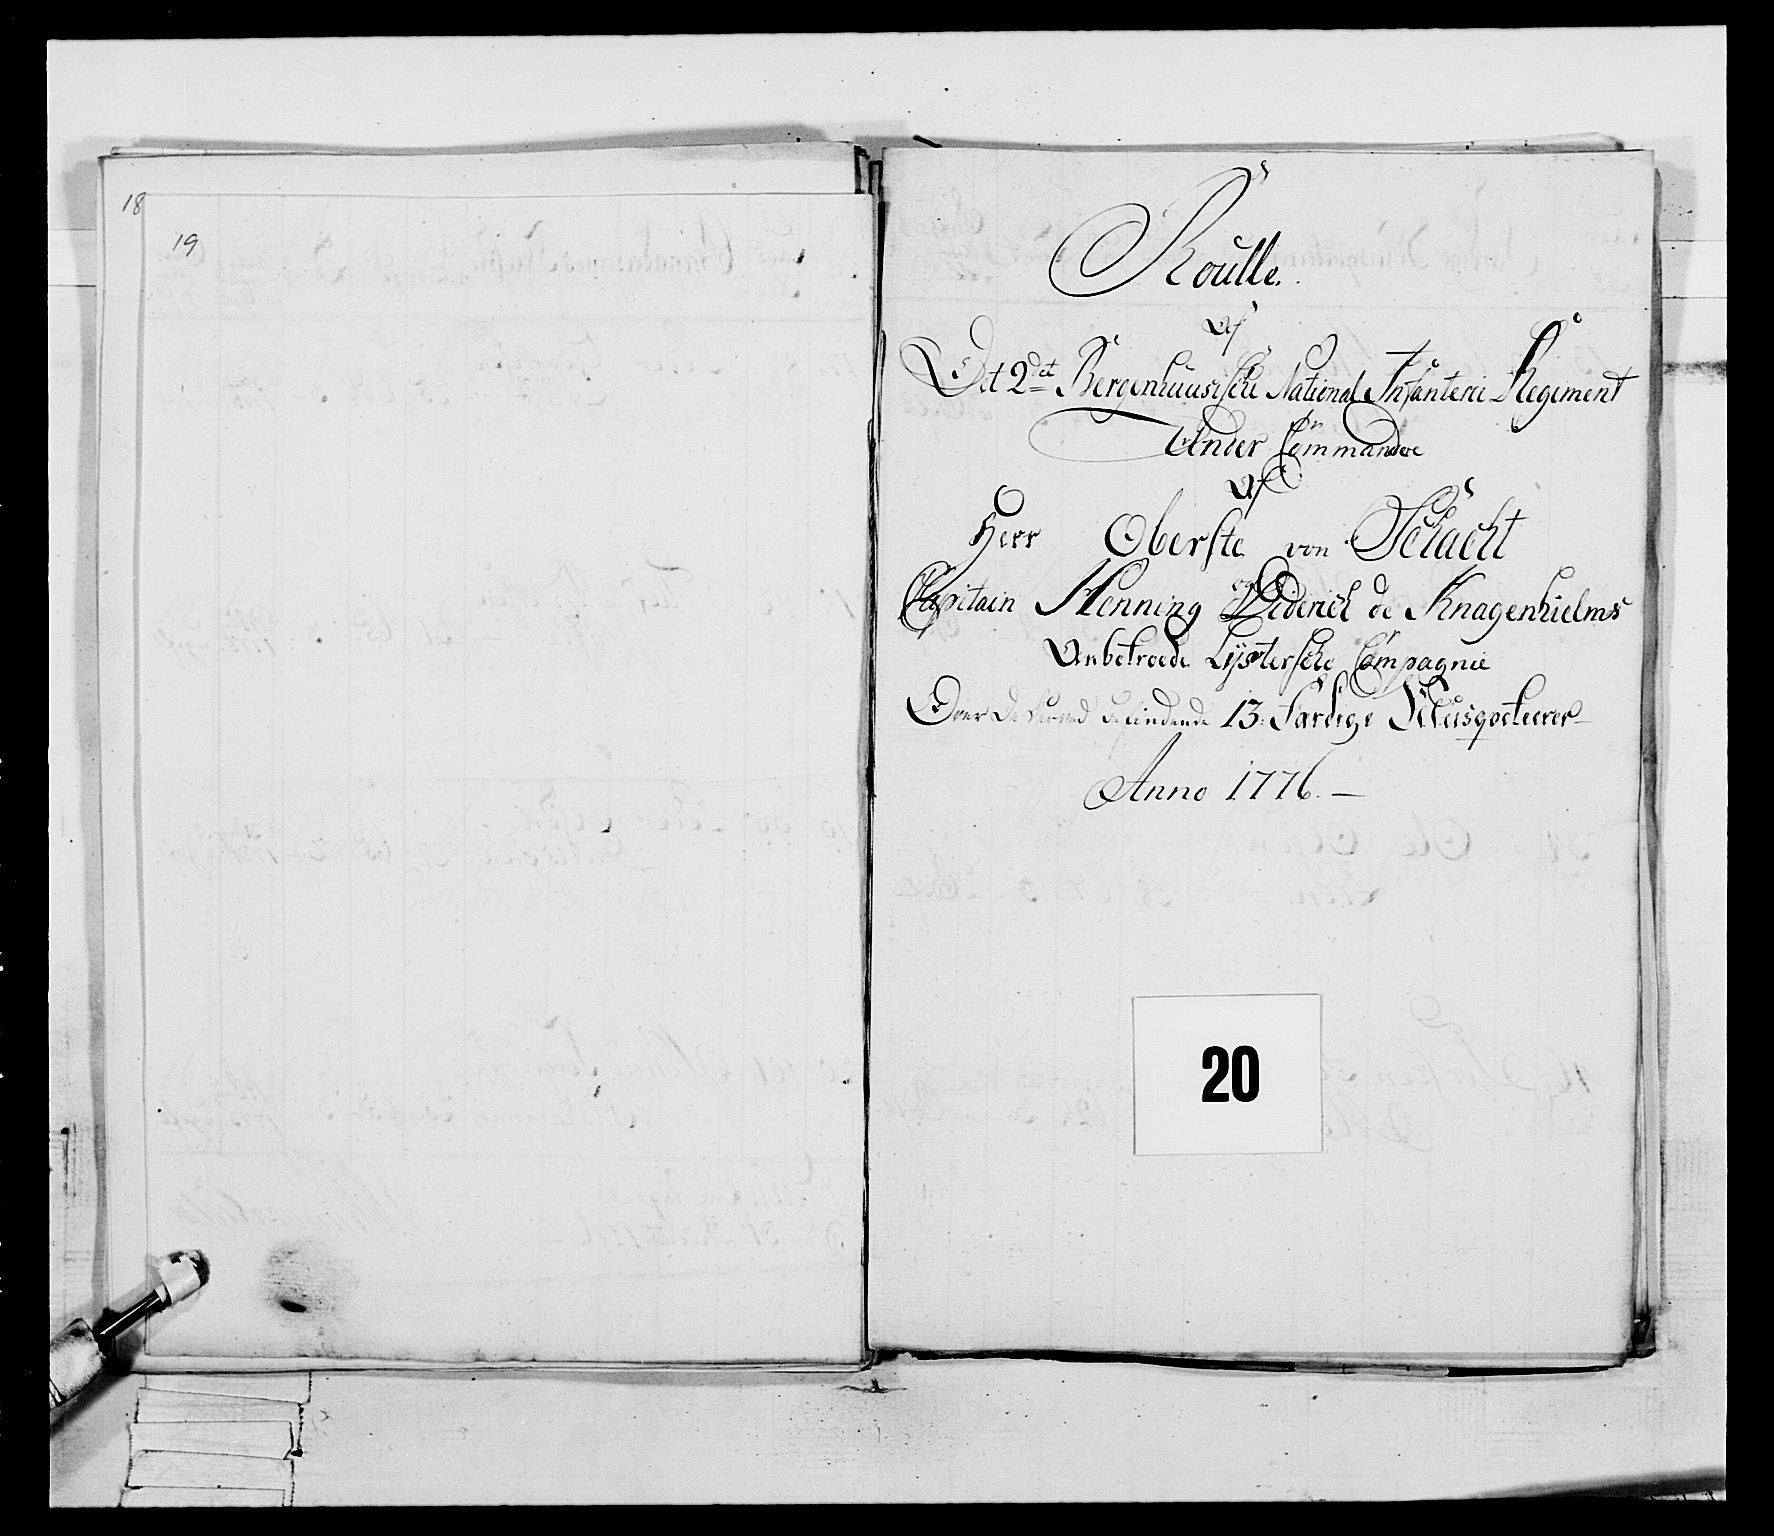 18
19
Roulle.
Af
Det 2det Bergenhuusische National Infanterie Regiment
Under Commando
Af
Herr Oberste von Schacht
og
Capitain Henning Diderich de Knagenhielms
Anbetroede Lystersche Compagnie
Over De herved befindende 13. Færdige Musqveteerer
Anno 1776.
20